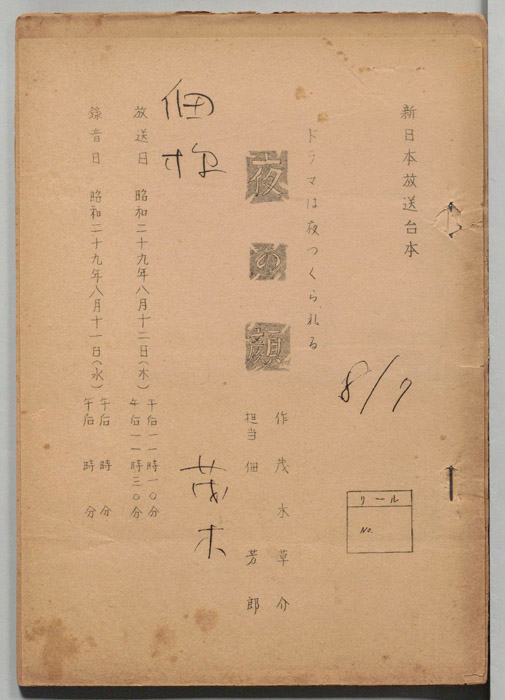 新日本放送台本
ドラマは夜つくられる
夜の顔
作 茂木草介
担当 佃 芳郎
8/7
リール
No.
佃
茂木
放送日 昭和二十九年八月十二日(木) 午后一一時一〇分
午后一一時三〇分
録音日 昭和二十九年八月十一日(水) 午后 時 分
午后 時 分